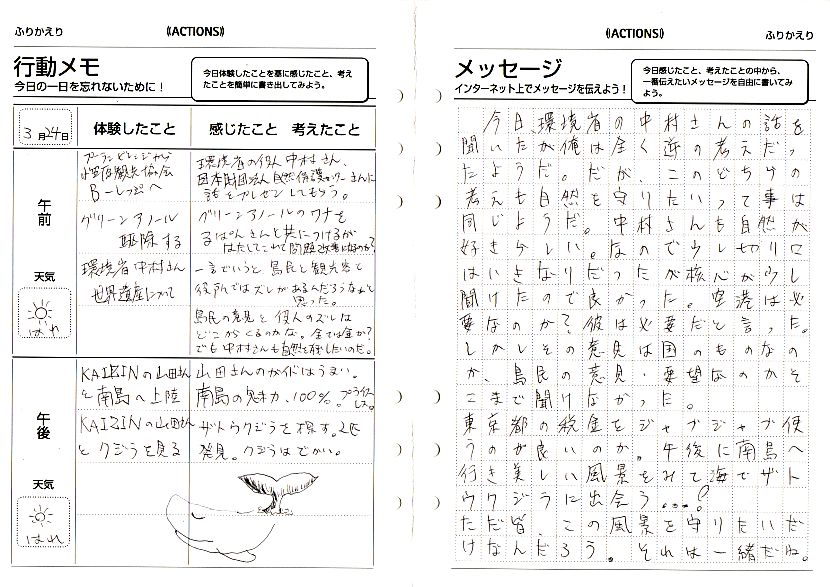 ふりかえり
《ACTIONS》
行動メモ
今日の一日を忘れないために！
今日体験したことを基に感じたこと、考え
たことを簡単に書き出してみよう。
3月24日
体験したこと
感じたこと 考えたこと
午前
天気
はれ
B-しっぷへ
グリーンアノール
駆除する
環境省中村さん
世界遺産について
環境省の役人中村さん、
話をプレゼンしてもらう。
グリーンアノールのワナを
一言でいうと島民と観光客と
役所ではズレがあるんだろうなぁと
思った。
島民の意見と役人のズレは
どこからくるのかな。金では金か？
でも中村さんも自然を残したいのだ。
午後
天気
はれ
KAIZINの山田さん
と南島へ上陸
KAIZINの山田さん
とクジラを見る
山田さんのガイドはうまい。
南島の魅力、100%。プライス
レス。
ザトウクジラを探す。2匹
発見。クジラはでかい。
《ACTIONS》
ふりかえり
メッセージ
インターネット上でメッセージを伝えよう！
今日感じたこと、考えたことの中から、
一番伝えたいメッセージを自由に書いてみ
よう。
今日、環境省の中村さんの話を
聞いたが俺は全く逆の考えだっ
たようだ。だが、このどちらの
考えも自然を守りたいって事は
同じようだ。中村さんも自然が
好きらしい。なので少し切り口
はいきなりだったが核心が少し
聞けたので良かった。空港は必
要なのか？彼は必要だと言った。
しかしその意見は国のものなの
か、島民の意見・要望なのかそ
こまで聞けなかった。
東京都の税金をジャブジャブ使
うのが良いのか。午後に南島へ
行き美しい風景をみて海でザト
ウクジラに出会う…。！
ただ皆、この風景を守りたいだ
けなんだろう。それは一緒だね。